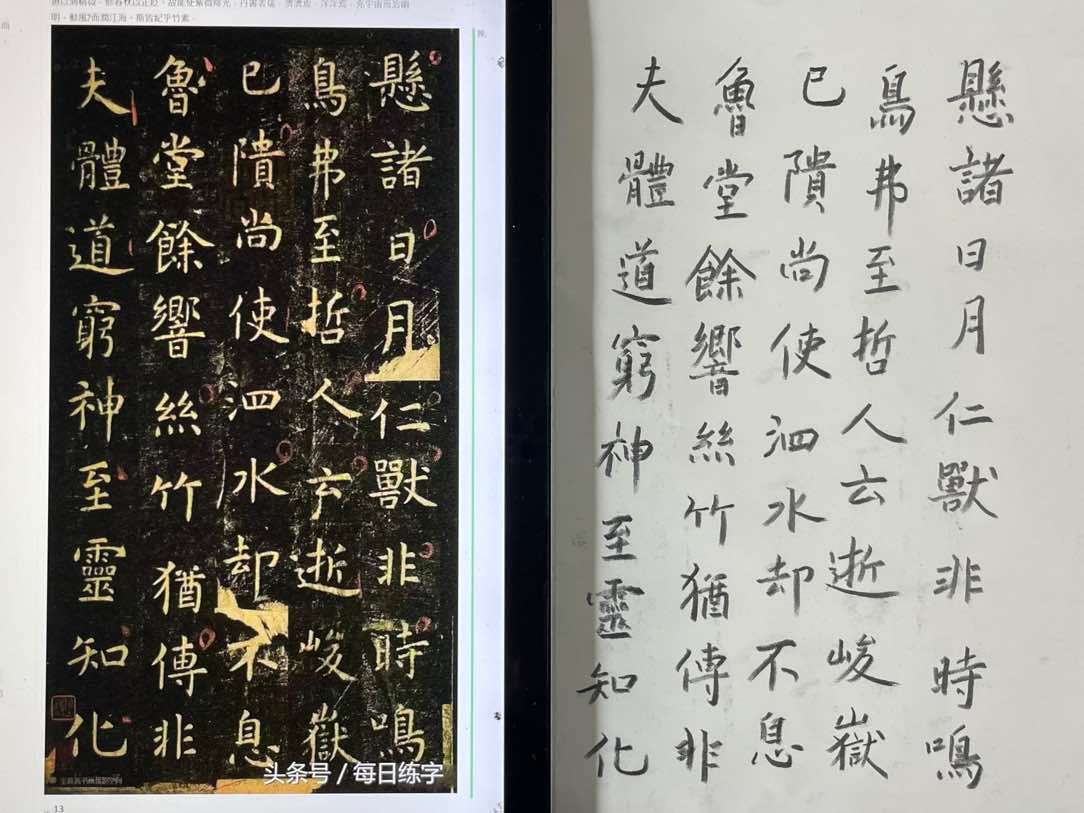 明，動風?而潤江海。斯皆紀乎竹素，
懸諸日月仁獸非時鳴
鳥弗至哲人云逝峻嶽
已隤尚使泗水却不息
魯堂餘響絲竹猶傳非
夫體道窮神至靈知化
头条号 / 每日练字
13
懸諸日月仁獸非時鳴
鳥弗至哲人云逝峻嶽
已隤尚使泗水却不息
魯堂餘響絲竹猶傳非
夫體道窮神至靈知化